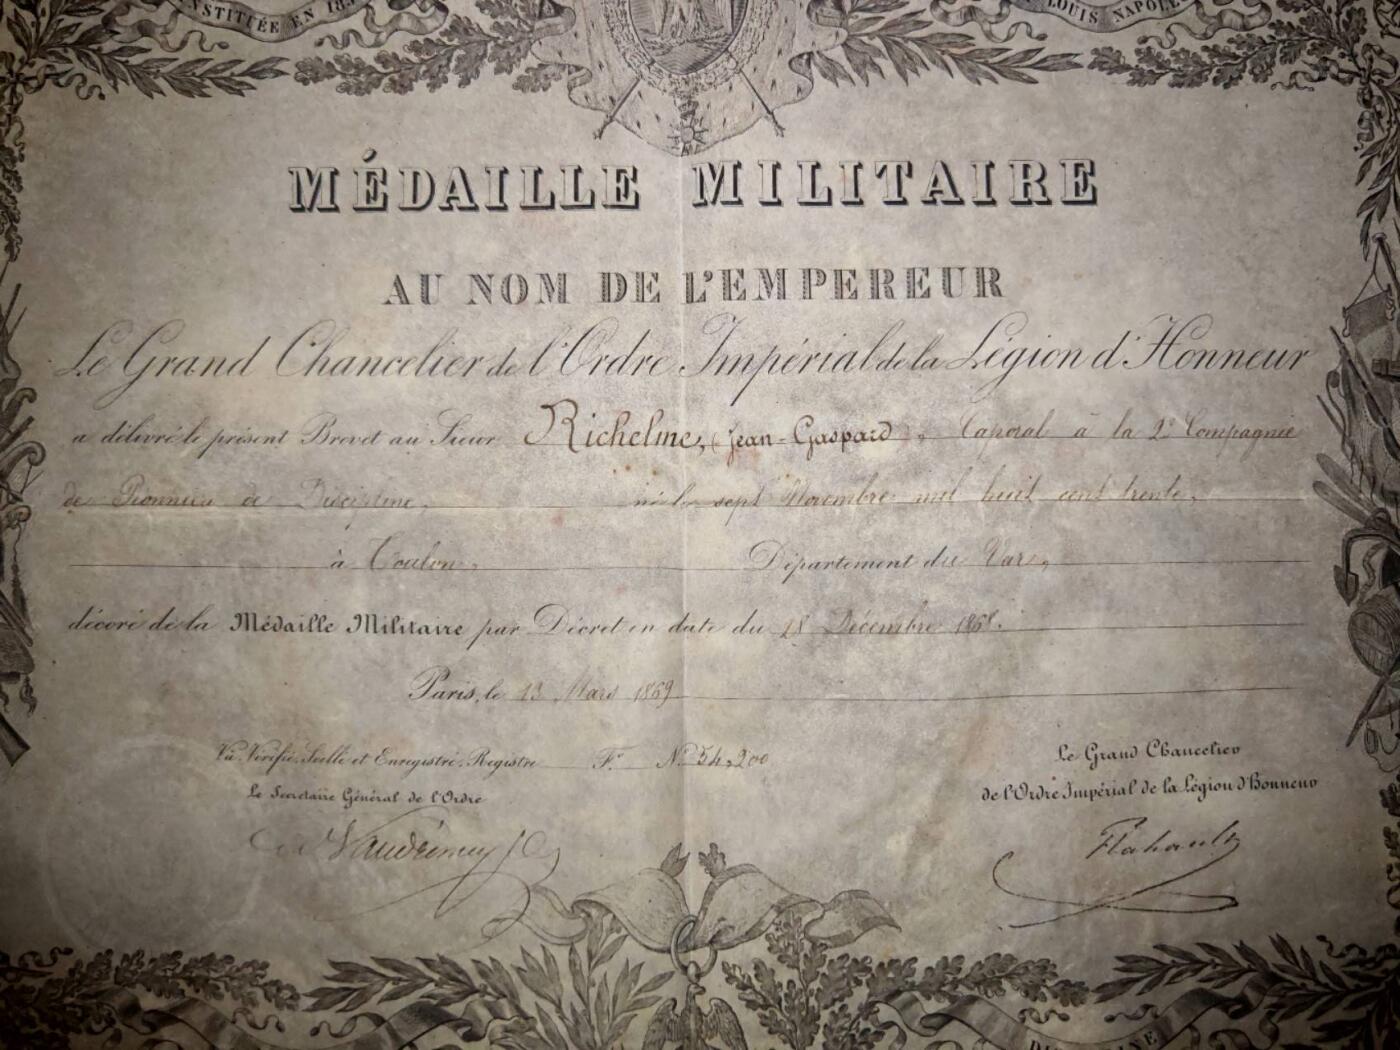 INSTITUÉE EN 185
LOUIS NAPOLÉ
MÉDAILLE MILITAIRE
AU NOM DE L'EMPEREUR
Le Grand Chancelier de l'Ordre Impérial de la Légion d'Honneur
a délivré le présent Brevet au Sieur Richelme, (Jean-Gaspard), Caporal à la 2e Compagnie
de Pionniers de Discipline, né le sept Novembre mil huit cent trente,
à Toulon, Département du Var,
décoré de la Médaille Militaire par Décret en date du 28 Décembre 1868.
Paris, le 13 Mars 1869
Vu, Vérifié, Scellé et Enregistré, Registre F. No 54,200
Le Secrétaire Général de l'Ordre
Le Grand Chancelier
de l'Ordre Impérial de la Légion d'Honneur
Vaudrimey
Flahault
DISCIPLINE